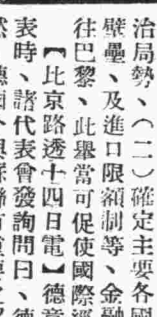 治局勢、（二）確定主要各國
壁壘、及進口限額制等、金融
往巴黎、此舉當可促使國際經
【比京路透十四日電】德意
表時、諸代表會發詢問日、德